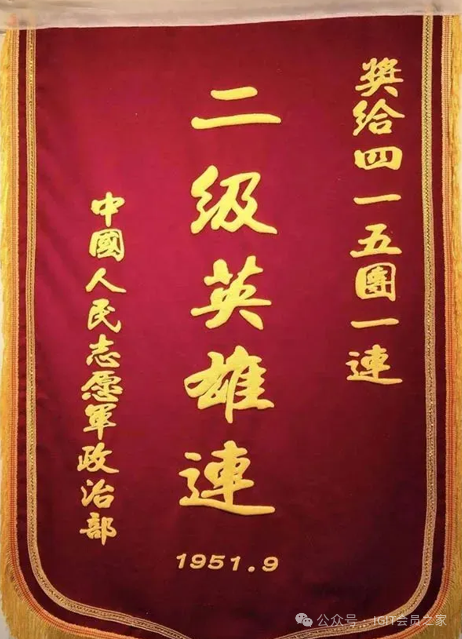 奬给四一五團一連
二级英雄連
中國人民志愿軍政治部
1951.9
公众号：IGIT会员之家